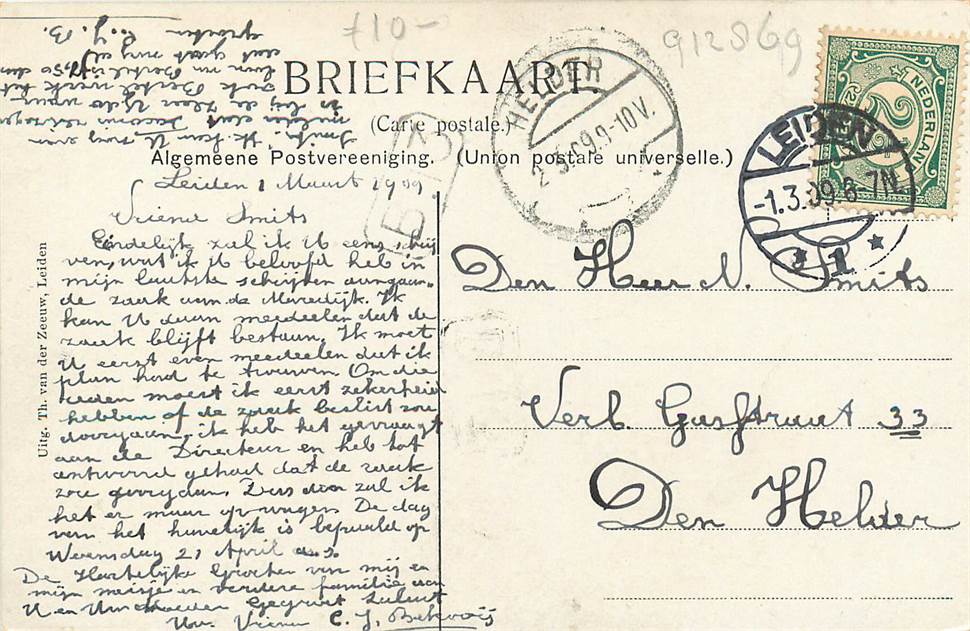 ƒ10-
912869
BRIEFKAART.
(Carte postale.)
Algemeene Postvereeniging. (Union postale universelle.)
HELDER
2.3.09.9-10V.
NEDERLAND
2½
LEIDEN
-1.3.09.6-7N.
1
Uitg. Th. van der Zeeuw, Leiden
Leiden 1 Maart 1909
Vriend Smits
Eindelijk zal ik U eens schrij
ven, wat ik U beloofd heb in
mijn laatste schrijven aangaan-
de de zaak van de Meredijk. Ik
kan U daan meedeelen dat de
zaak blijft bestaan. Ik moet
U eerst even meedeelen dat ik
plan had te trouwen Om die
reden moest ik eerst zekerheid
hebben of de zaak beslist zou
doorgaan, ik heb het gevraagt
aan de Directeur en heb tot
antwoord gehad dat de zaak
zou doorgaan. Dus dan zal ik
het er maar op wagen. De dag
van het huwelijk is bepaald op
Woensdag 21 April a.s.
De Hartelijke Groeten van mij en
mijn meisje en verdere familie aan
U en Uw Moeder Gegroet Saluut
Uw. Vriend C. J.
Smits. Ik kan U nog even
melden dat
in bij de Heer
zaak
dat gaat nog al
groeten C. J. B.
Den Heer N. Smits
Verl. Gasstraat 33
Den Helder